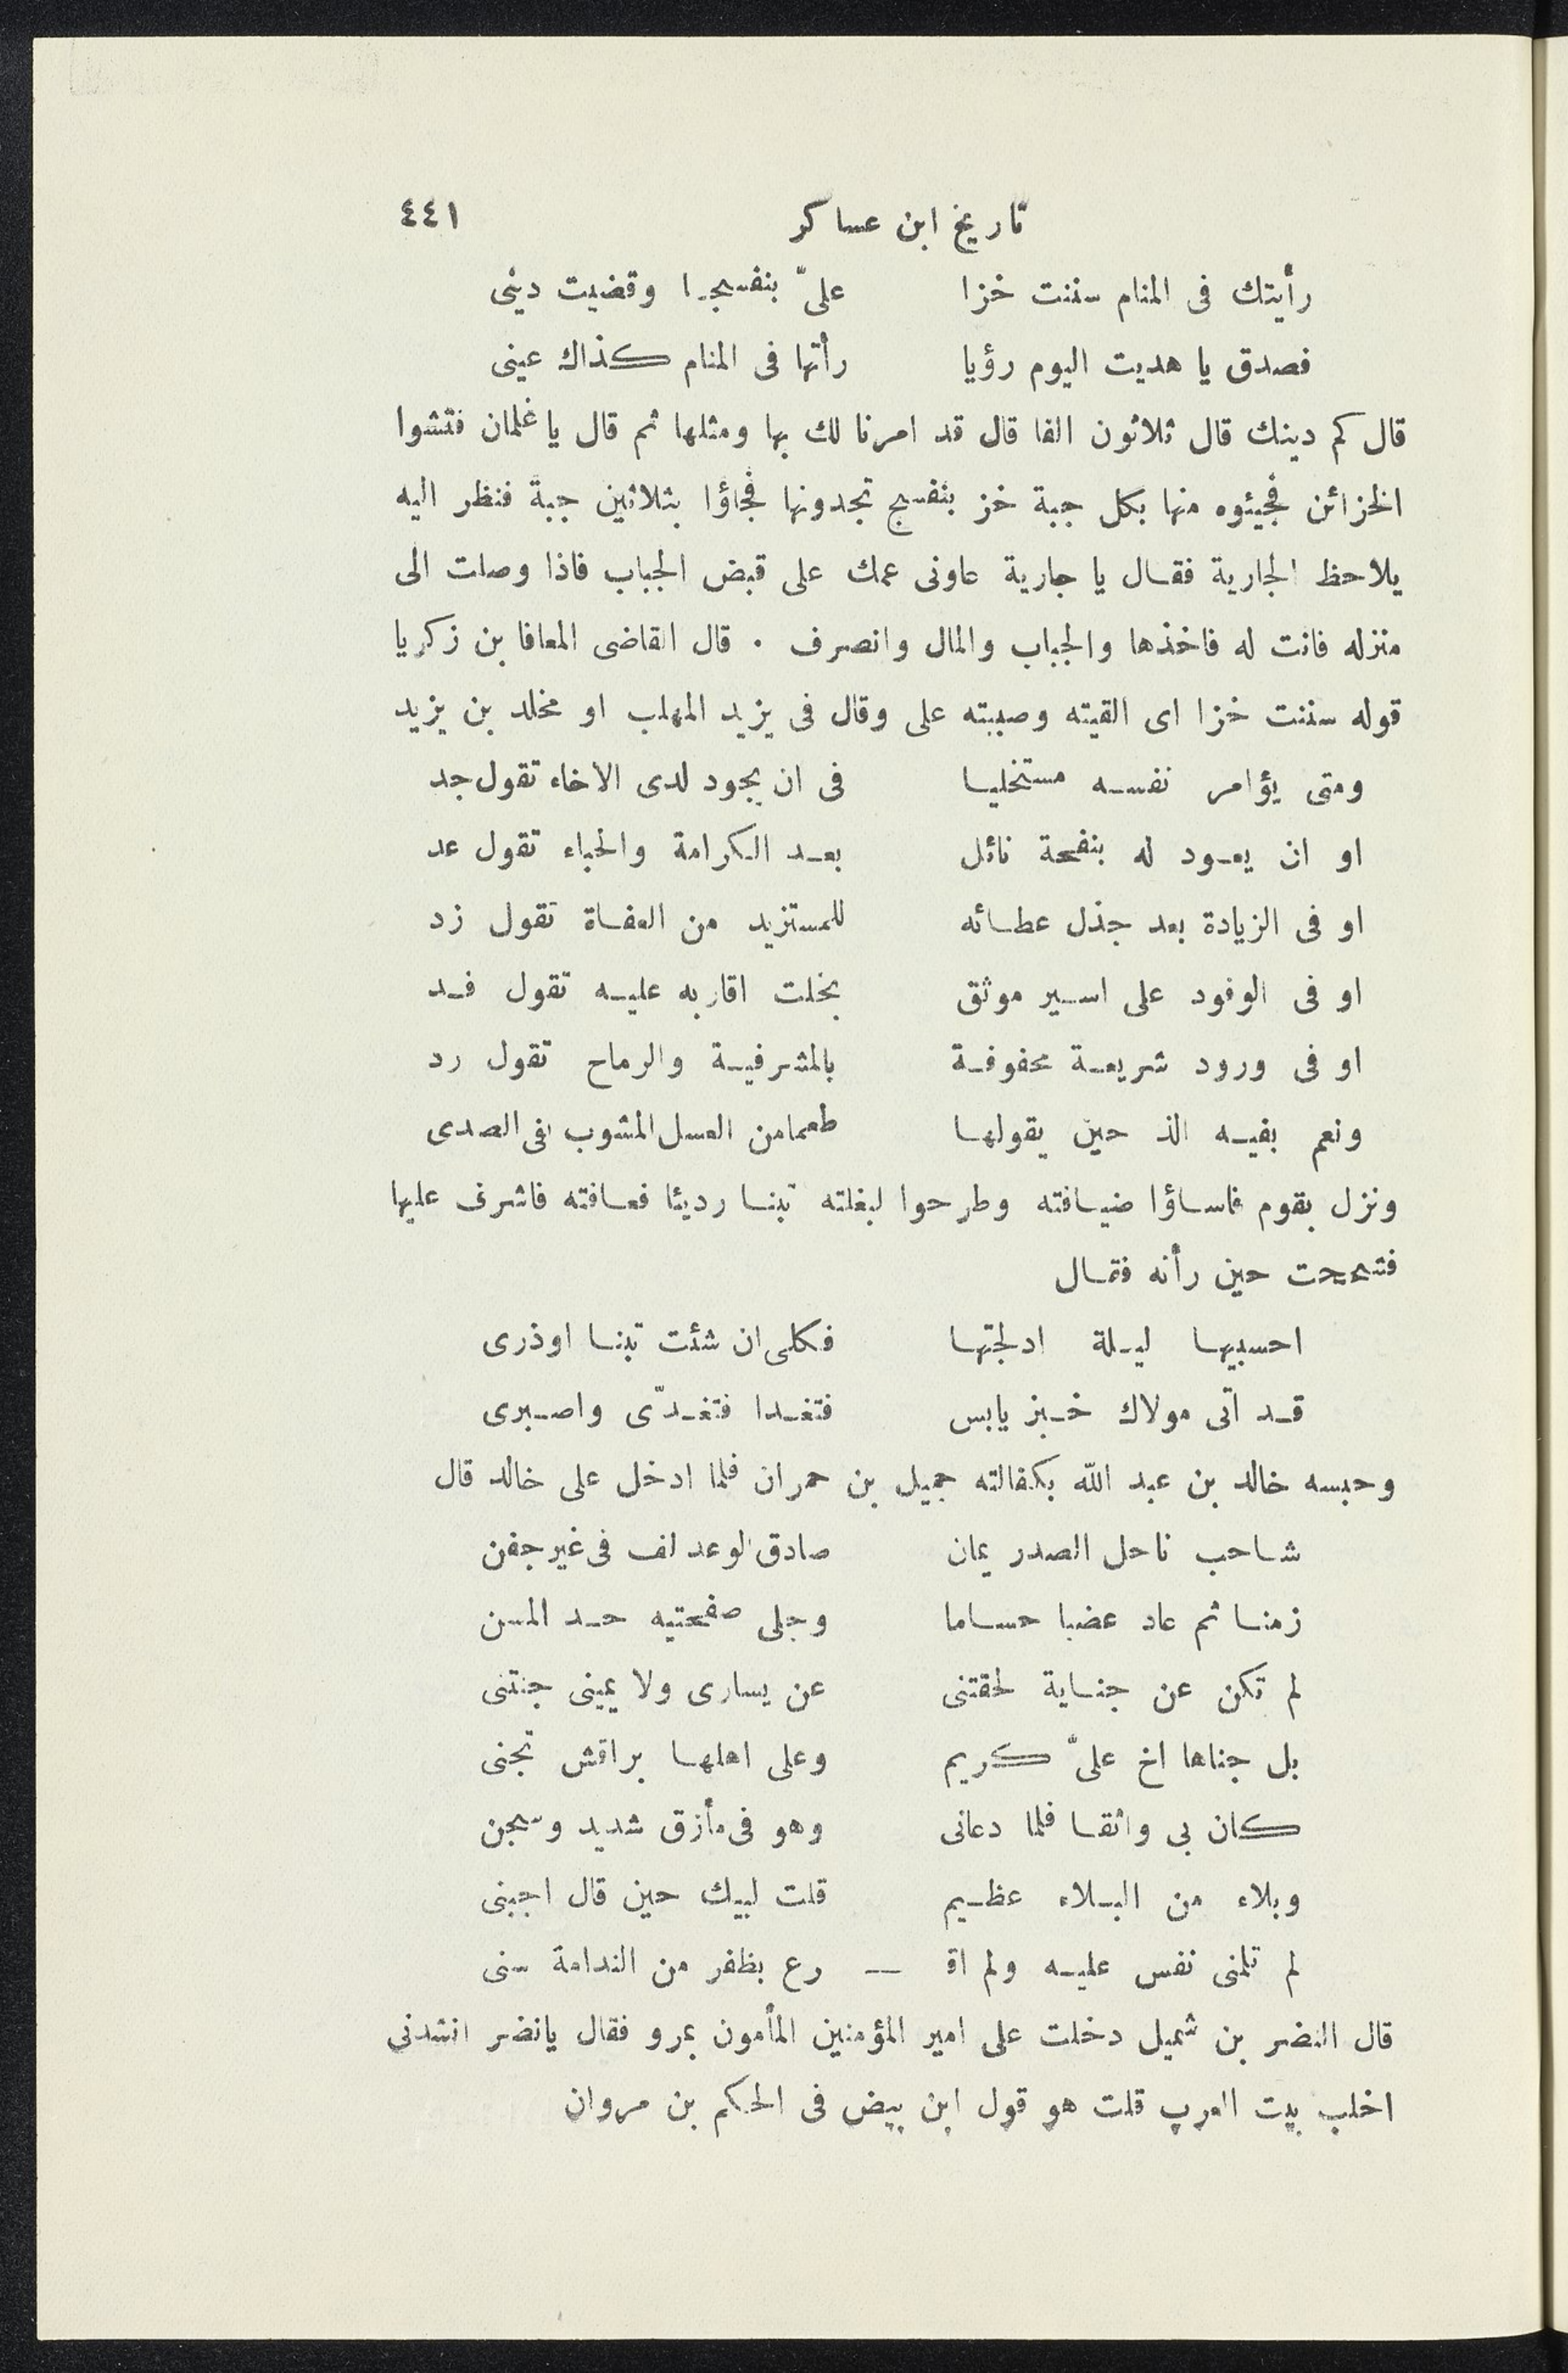 تاريخ ابن عساكر ٤٤١
رأيتك فى المنام سننت خزا علىّ بنفسجا وقضيت دينى
فصدق يا هديت اليوم رؤيا رأتها فى المنام كذاك عينى
قال كم دينك قال ثلاثون الفا قال قد امرنا لك بها ومثلها ثم قال يا غلمان فتشوا
الخزائن فجيئوه منها بكل جبة خز بنفسج تجدونها فجاؤا بثلاثين جبة فنظر اليه
يلاحظ الجارية فقال يا جارية عاونى عمك على قبض الجباب فاذا وصلت الى
منزله فانت له فاخذها والجباب والمال وانصرف . قال القاضى المعافا بن زكريا
قوله سننت خزا اى القيته وصببته على وقال فى يزيد المهلب او مخلد بن يزيد
ومتى يؤامر نفسه مستخليا فى ان يجود لدى الاخاء تقول جد
او ان يعود له بنفحة نائل بعد الكرامة والحباء تقول عد
او فى الزيادة بعد جذل عطائه للمستزيد من العفاة تقول زد
او فى الوفود على اسير موثق بخلت اقاربه عليه تقول فد
او فى ورود شريعة محفوفة بالمشرفية والرماح تقول رد
ونعم بفيه الذ حين يقولها طعمامن العسل المشوب بفى الصدى
ونزل بقوم فاساؤا ضيافته وطرحوا لبغلته تبنا رديئا فعافته فاشرف عليها
فشحجت حين رأنه فقال
احسبيها ليلة ادلجتها فكلى ان شئت تبنا اوذرى
قد اتى مولاك خبز يابس فتغدا فتغدّى واصبرى
وحبسه خالد بن عبد الله بكفالته جميل بن حمران فلما ادخل على خالد قال
شاحب ناحل الصدر يمان صادق الوعد لف فى غير جفن
زمنا ثم عاد عضبا حساما وجلى صفحتيه حد المسن
لم تكن عن جناية لحقتنى عن يسارى ولا يمينى جنتنى
بل جناها اخ علىّ كريم وعلى اهلها براقش تجنى
كان بى واثقا فلما دعانى وهو فى مأزق شديد وسجن
وبلاء من البلاء عظيم قلت لبيك حين قال اجبنى
لم تلمنى نفس عليه ولم اق — رع بظفر من الندامة سنى
قال النضر بن شميل دخلت على امير المؤمنين المأمون بمرو فقال يانضر انشدنى
اخلب بيت العرب قلت هو قول ابن بيض فى الحكم بن مروان